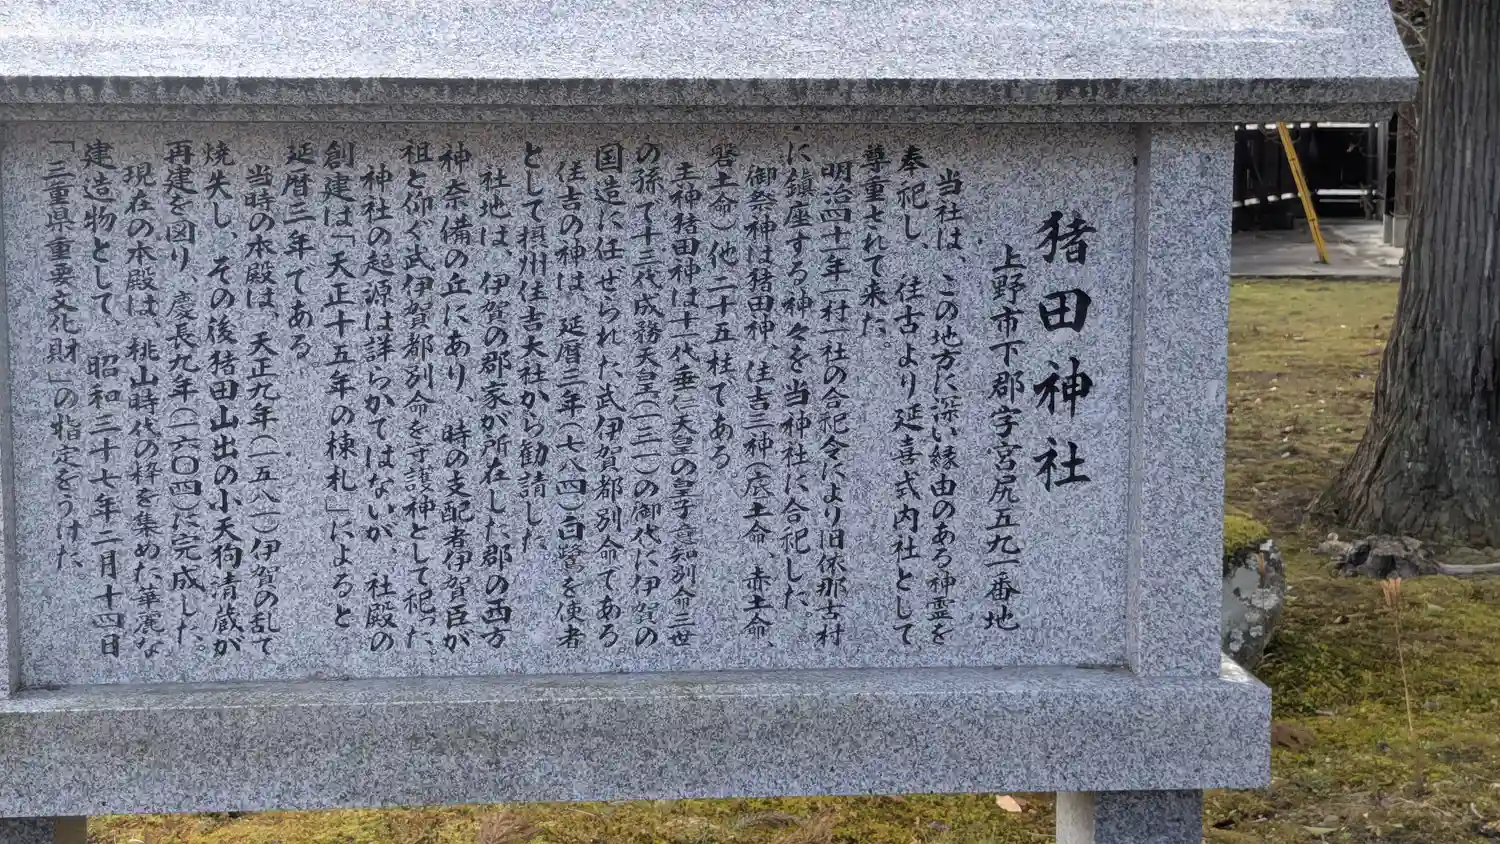 猪田神社
上野市下郡字宮尻五九一番地
当社は、この地方に深い縁由のある神霊を
奉祀し、往古より延喜式内社として
尊重されて来た。
明治四十一年一村一社の合祀令により旧依那古村
に鎮座する神々を当神社に合祀した。
御祭神は猪田神、住吉三神(底土命、赤土命、
磐土命)他二十五柱である
主神猪田神は十一代垂仁天皇の皇子意知別命三世
の孫で十三代成務天皇(一三一)の御代に伊賀の
国造に任ぜられた武伊賀都別命である
住吉の神は、延暦三年(七八四)白鷺を使者
として摂州住吉大社から勧請した。
社地は、伊賀の郡家が所在した郡の西方
神奈備の丘にあり、時の支配者伊賀臣が
祖と仰ぐ武伊賀都別命を守護神として祀った、
神社の起源は詳らかではないが、社殿の
創建は「天正十五年の棟札」によると
延暦三年である
当時の本殿は、天正九年(一五八一)伊賀の乱で
焼失し、その後猪田山出の小天狗清蔵が
再建を図り、慶長九年(一六〇四)に完成した。
現在の本殿は、桃山時代の粋を集めた華麗な
建造物として、昭和三十七年二月十四日
「三重県重要文化財」の指定をうけた。